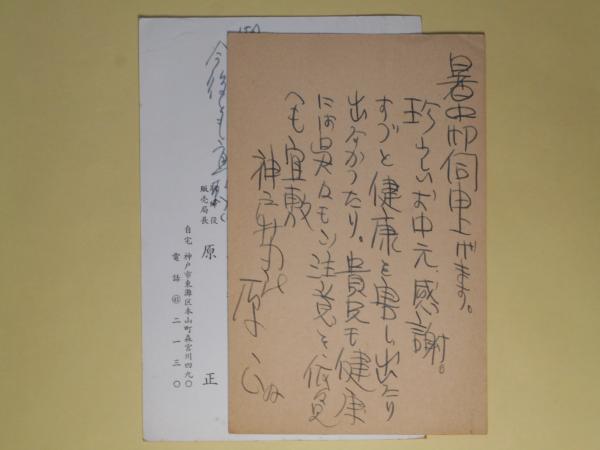 暑中御伺申上げます。
珍らしいお中元、感謝。
すつと健康を害し出たり
出なかつたり。貴兄も健康
には呉々も御注意を
へも宜敷
神戸
原
今後も宜
取締役
販売局長
原 正
自宅 神戸市東灘区本山町森宮川四九〇
電話 二一三〇